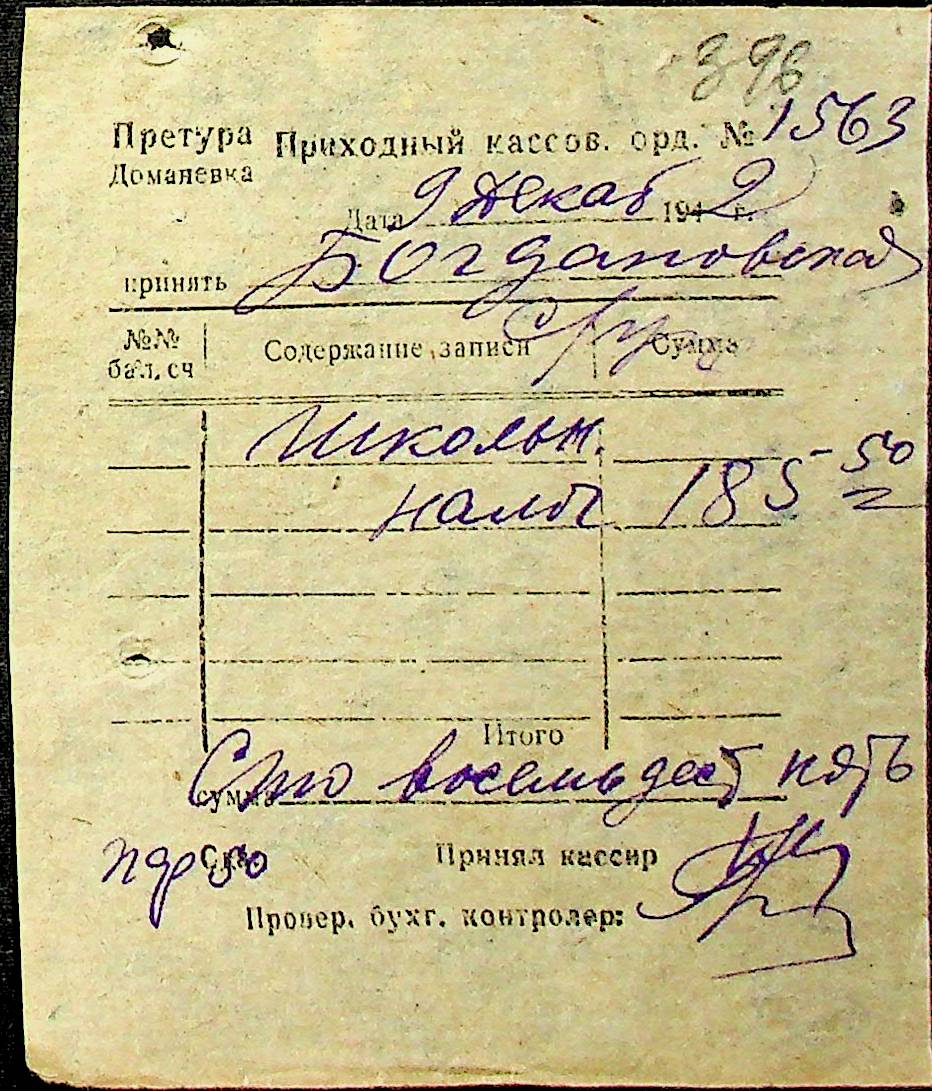 396
Претура Приходный кассов. орд. № 1563
Доманевка
Дата 9 Декаб 1942 г.
принять Богдановская
№№ бал. сч Содержание записи Сумма
Школьн.
налог 185 50
Итого
сумма Сто восемьдест пять
50 Принял кассир
Провер. бухг. контролер: